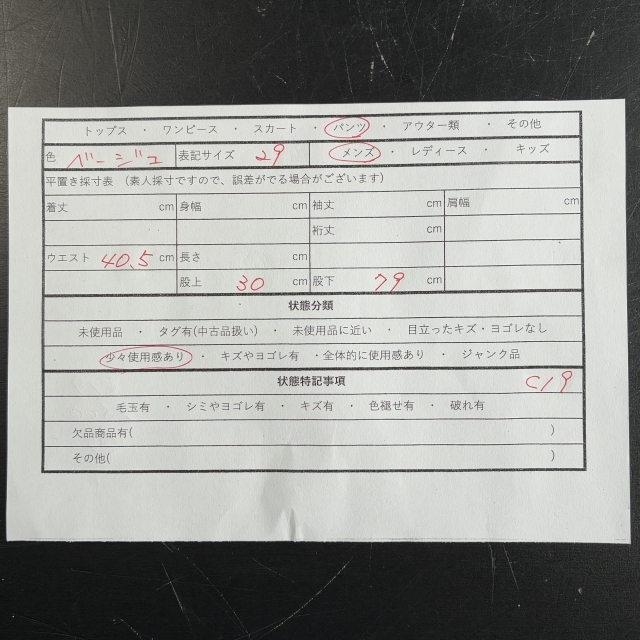 トップス ・ ワンピース ・ スカート ・ パンツ ・ アウター類 ・ その他
色 ベージュ 表記サイズ 29 メンズ ・ レディース ・ キッズ
平置き採寸表 (素人採寸ですので、誤差がでる場合がございます)
着丈 cm 身幅 cm 袖丈 cm 肩幅 cm
裄丈 cm
ウエスト 40.5 cm 長さ cm
股上 30 cm 股下 79 cm
状態分類
未使用品 ・ タグ有(中古品扱い) ・ 未使用に近い ・ 目立ったキズ・ヨゴレなし
少々使用感あり ・ キズやヨゴレ有 ・全体的に使用感あり ・ ジャンク品
状態特記事項 C19
毛玉有 ・ シミやヨゴレ有 ・ キズ有 ・ 色褪せ有 ・ 破れ有
欠品商品有( )
その他( )